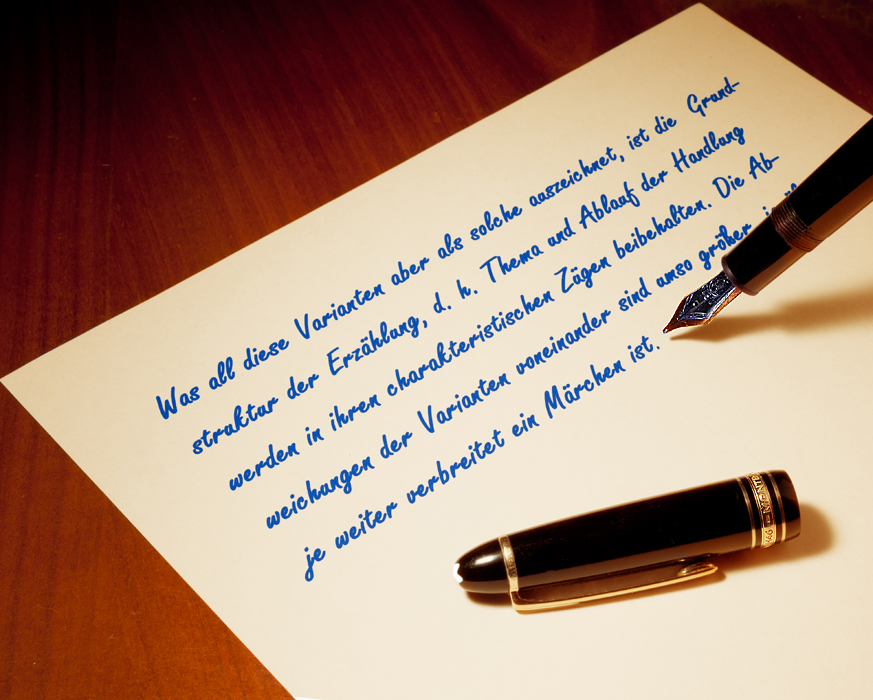 Was all diese Varianten aber als solche auszeichnet, ist die Grund-
struktur der Erzählung, d. h. Thema und Ablauf der Handlung
werden in ihren charakteristischen Zügen beibehalten. Die Ab-
weichungen der Varianten voneinander sind umso größer
je weiter verbreitet ein Märchen ist.